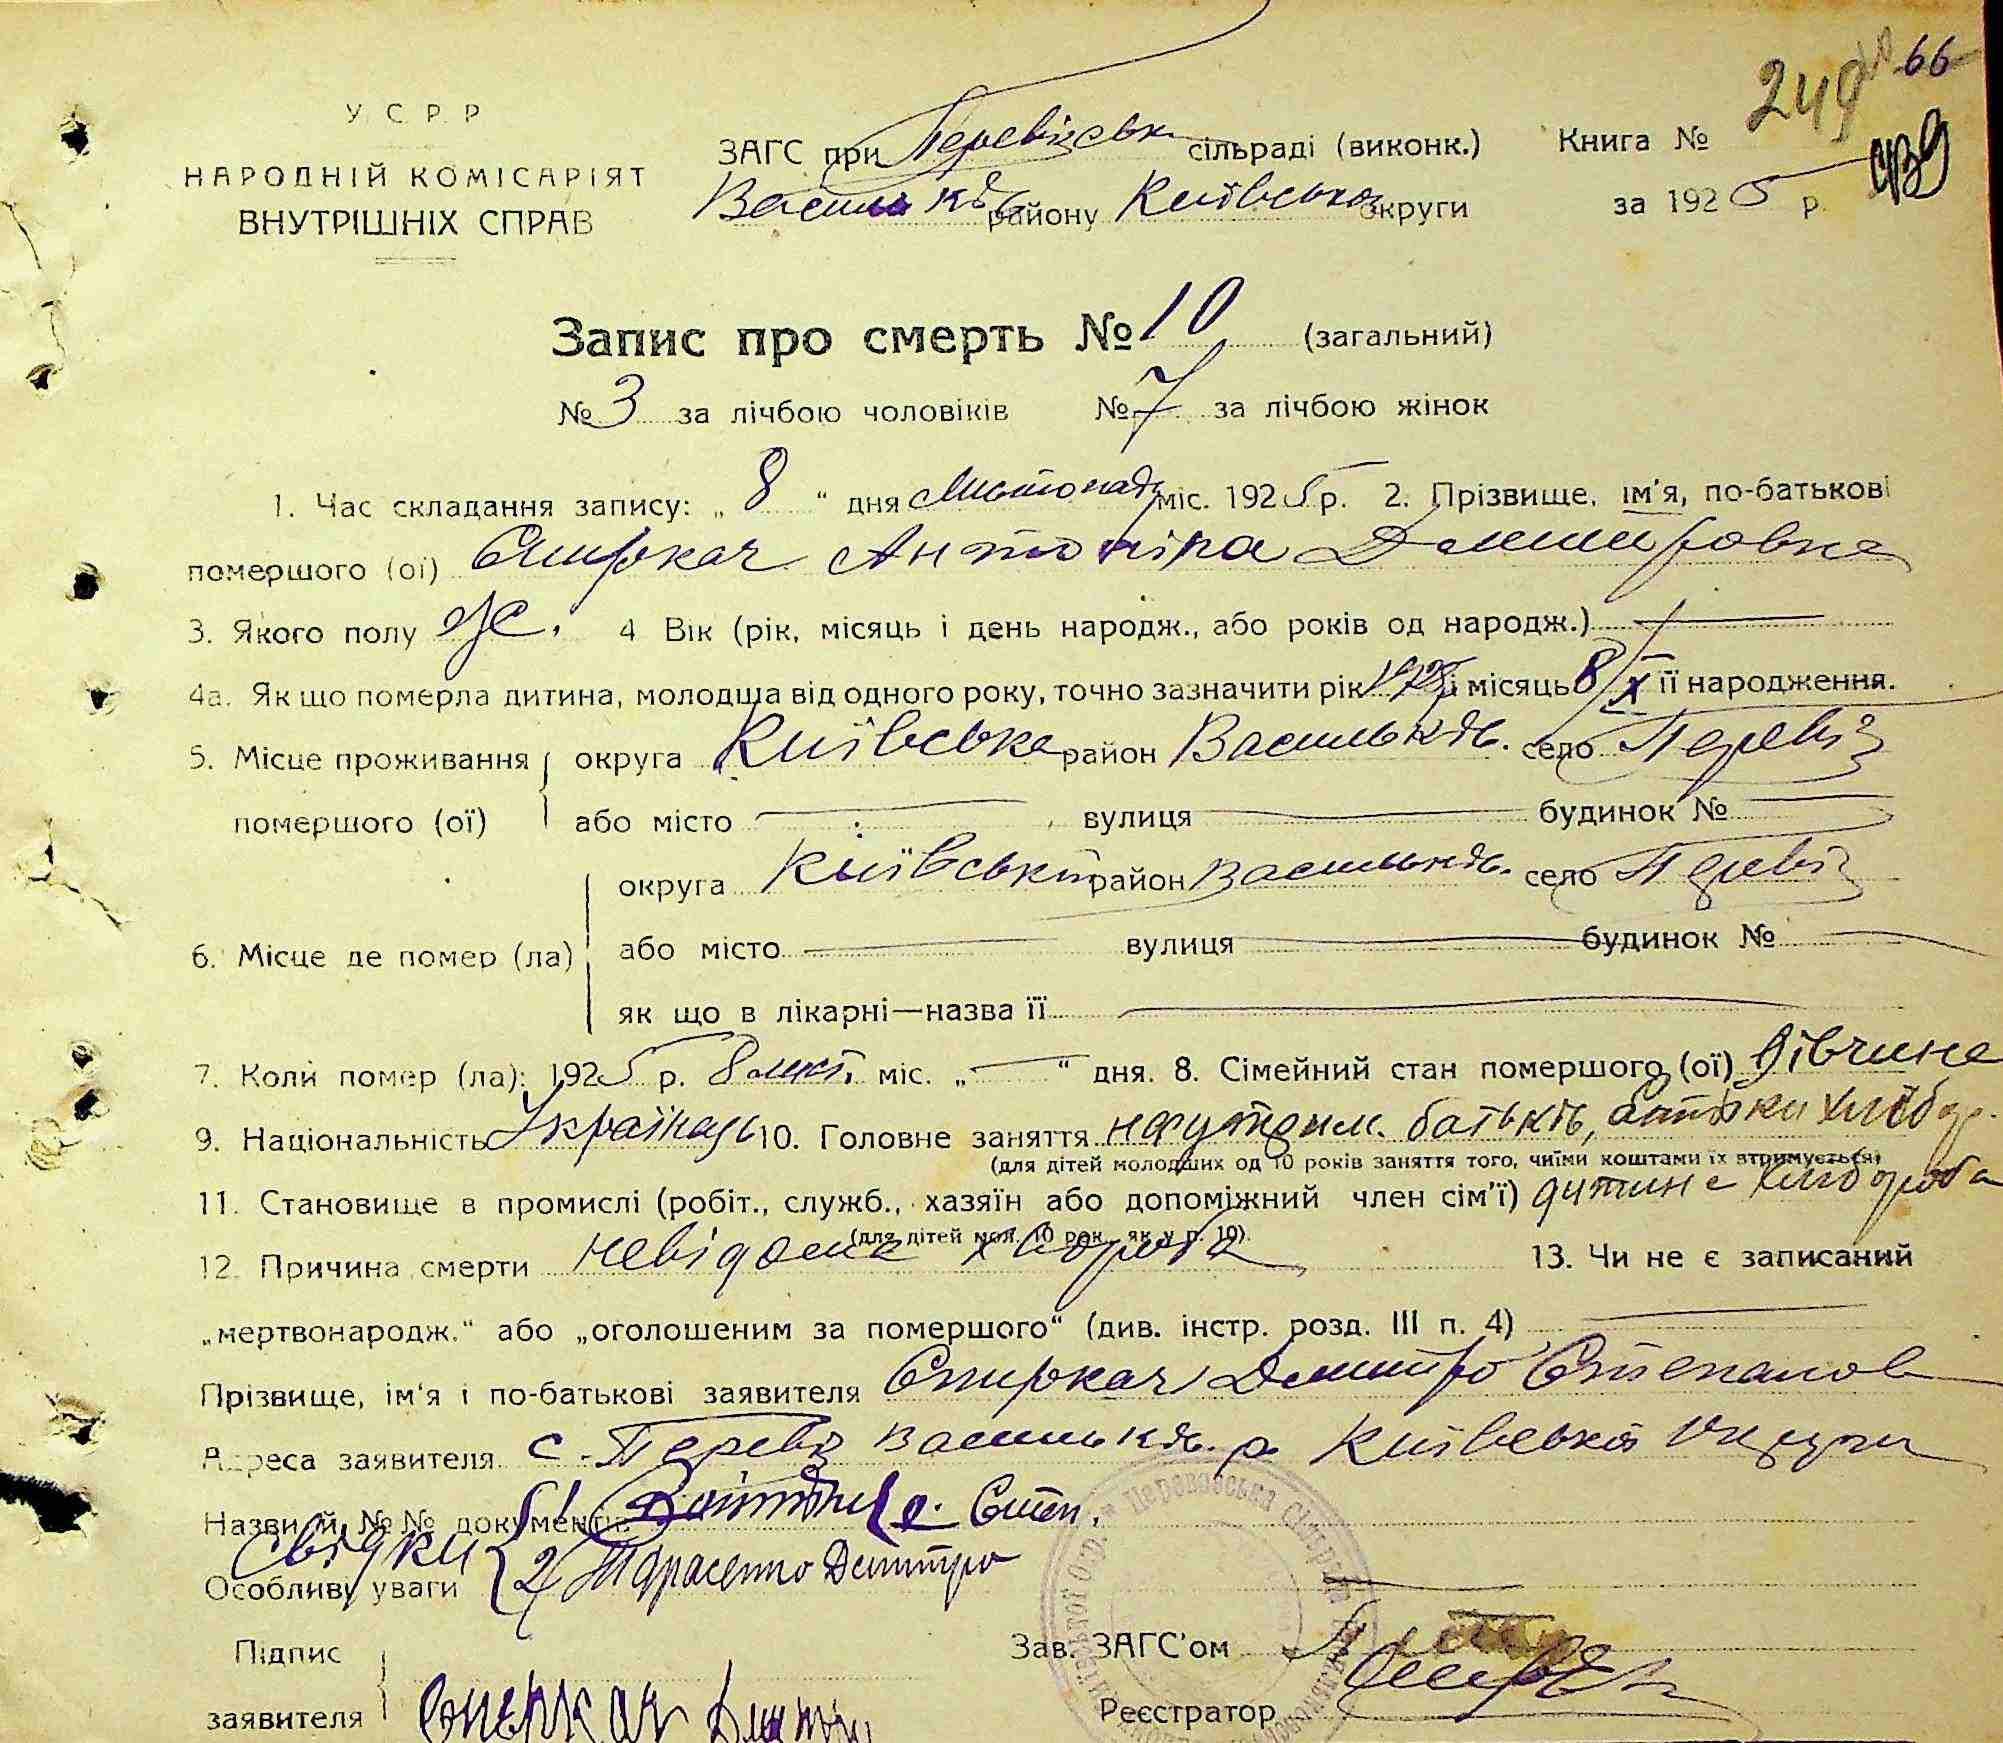 249 66
У. С. Р. Р.
НАРОДНІЙ КОМІСАРІЯТ
ВНУТРІШНІХ СПРАВ
ЗАГС при Перевізськ сільраді (виконк.) Книга №
Васильків району Київської округи за 1925 р.
Запис про смерть № 10 (загальний)
№ 3 за лічбою чоловіків № 7 за лічбою жінок
1. Час складання запису: „ 8 “ дня Листопада міс. 1925 р. 2. Прізвище, ім'я, по-батькові
помершого (ої) Антоніна Дмитровна
3. Якого полу ж. 4 Вік (рік, місяць і день народж., або років од народж.) —
4а. Як що померла дитина, молодша від одного року, точно зазначити рік 1925 і місяць 8/X її народження.
5. Місце проживання округа Київська район Васильків. село Перевіз
помершого (ої) або місто — вулиця — будинок № —
6. Місце де помер (ла) округа район Васильків. село Перевіз
або місто — вулиця — будинок № —
як що в лікарні—назва її —
7. Коли помер (ла): 1925 р. 8 лист. міс. „ — “ дня. 8. Сімейний стан помершого (ої) дівчина
9. Національність 10. Головне заняття батьків,
(для дітей молодших од 10 років заняття того, чиїми коштами їх втримується)
11. Становище в промислі (робіт., служб., хазяїн або допоміжний член сім'ї) дитина хлібороба
(для дітей мол. 10 рок. як у п. 10).
12. Причина смерти невідома хвороба 13. Чи не є записаний
„мертвонародж.“ або „оголошеним за помершого“ (див. інстр. розд. III п. 4) —
Прізвище, ім'я і по-батькові заявителя Дмитро Степанов
Адреса заявителя с. Перевіз Васильків. р. Київської Округи
Назви й №№ документів 1)
Свідки
Особливі уваги 2) Тарасенко Дмитро
Підпис
заявителя
Зав. ЗАГС'ом
Реєстратор